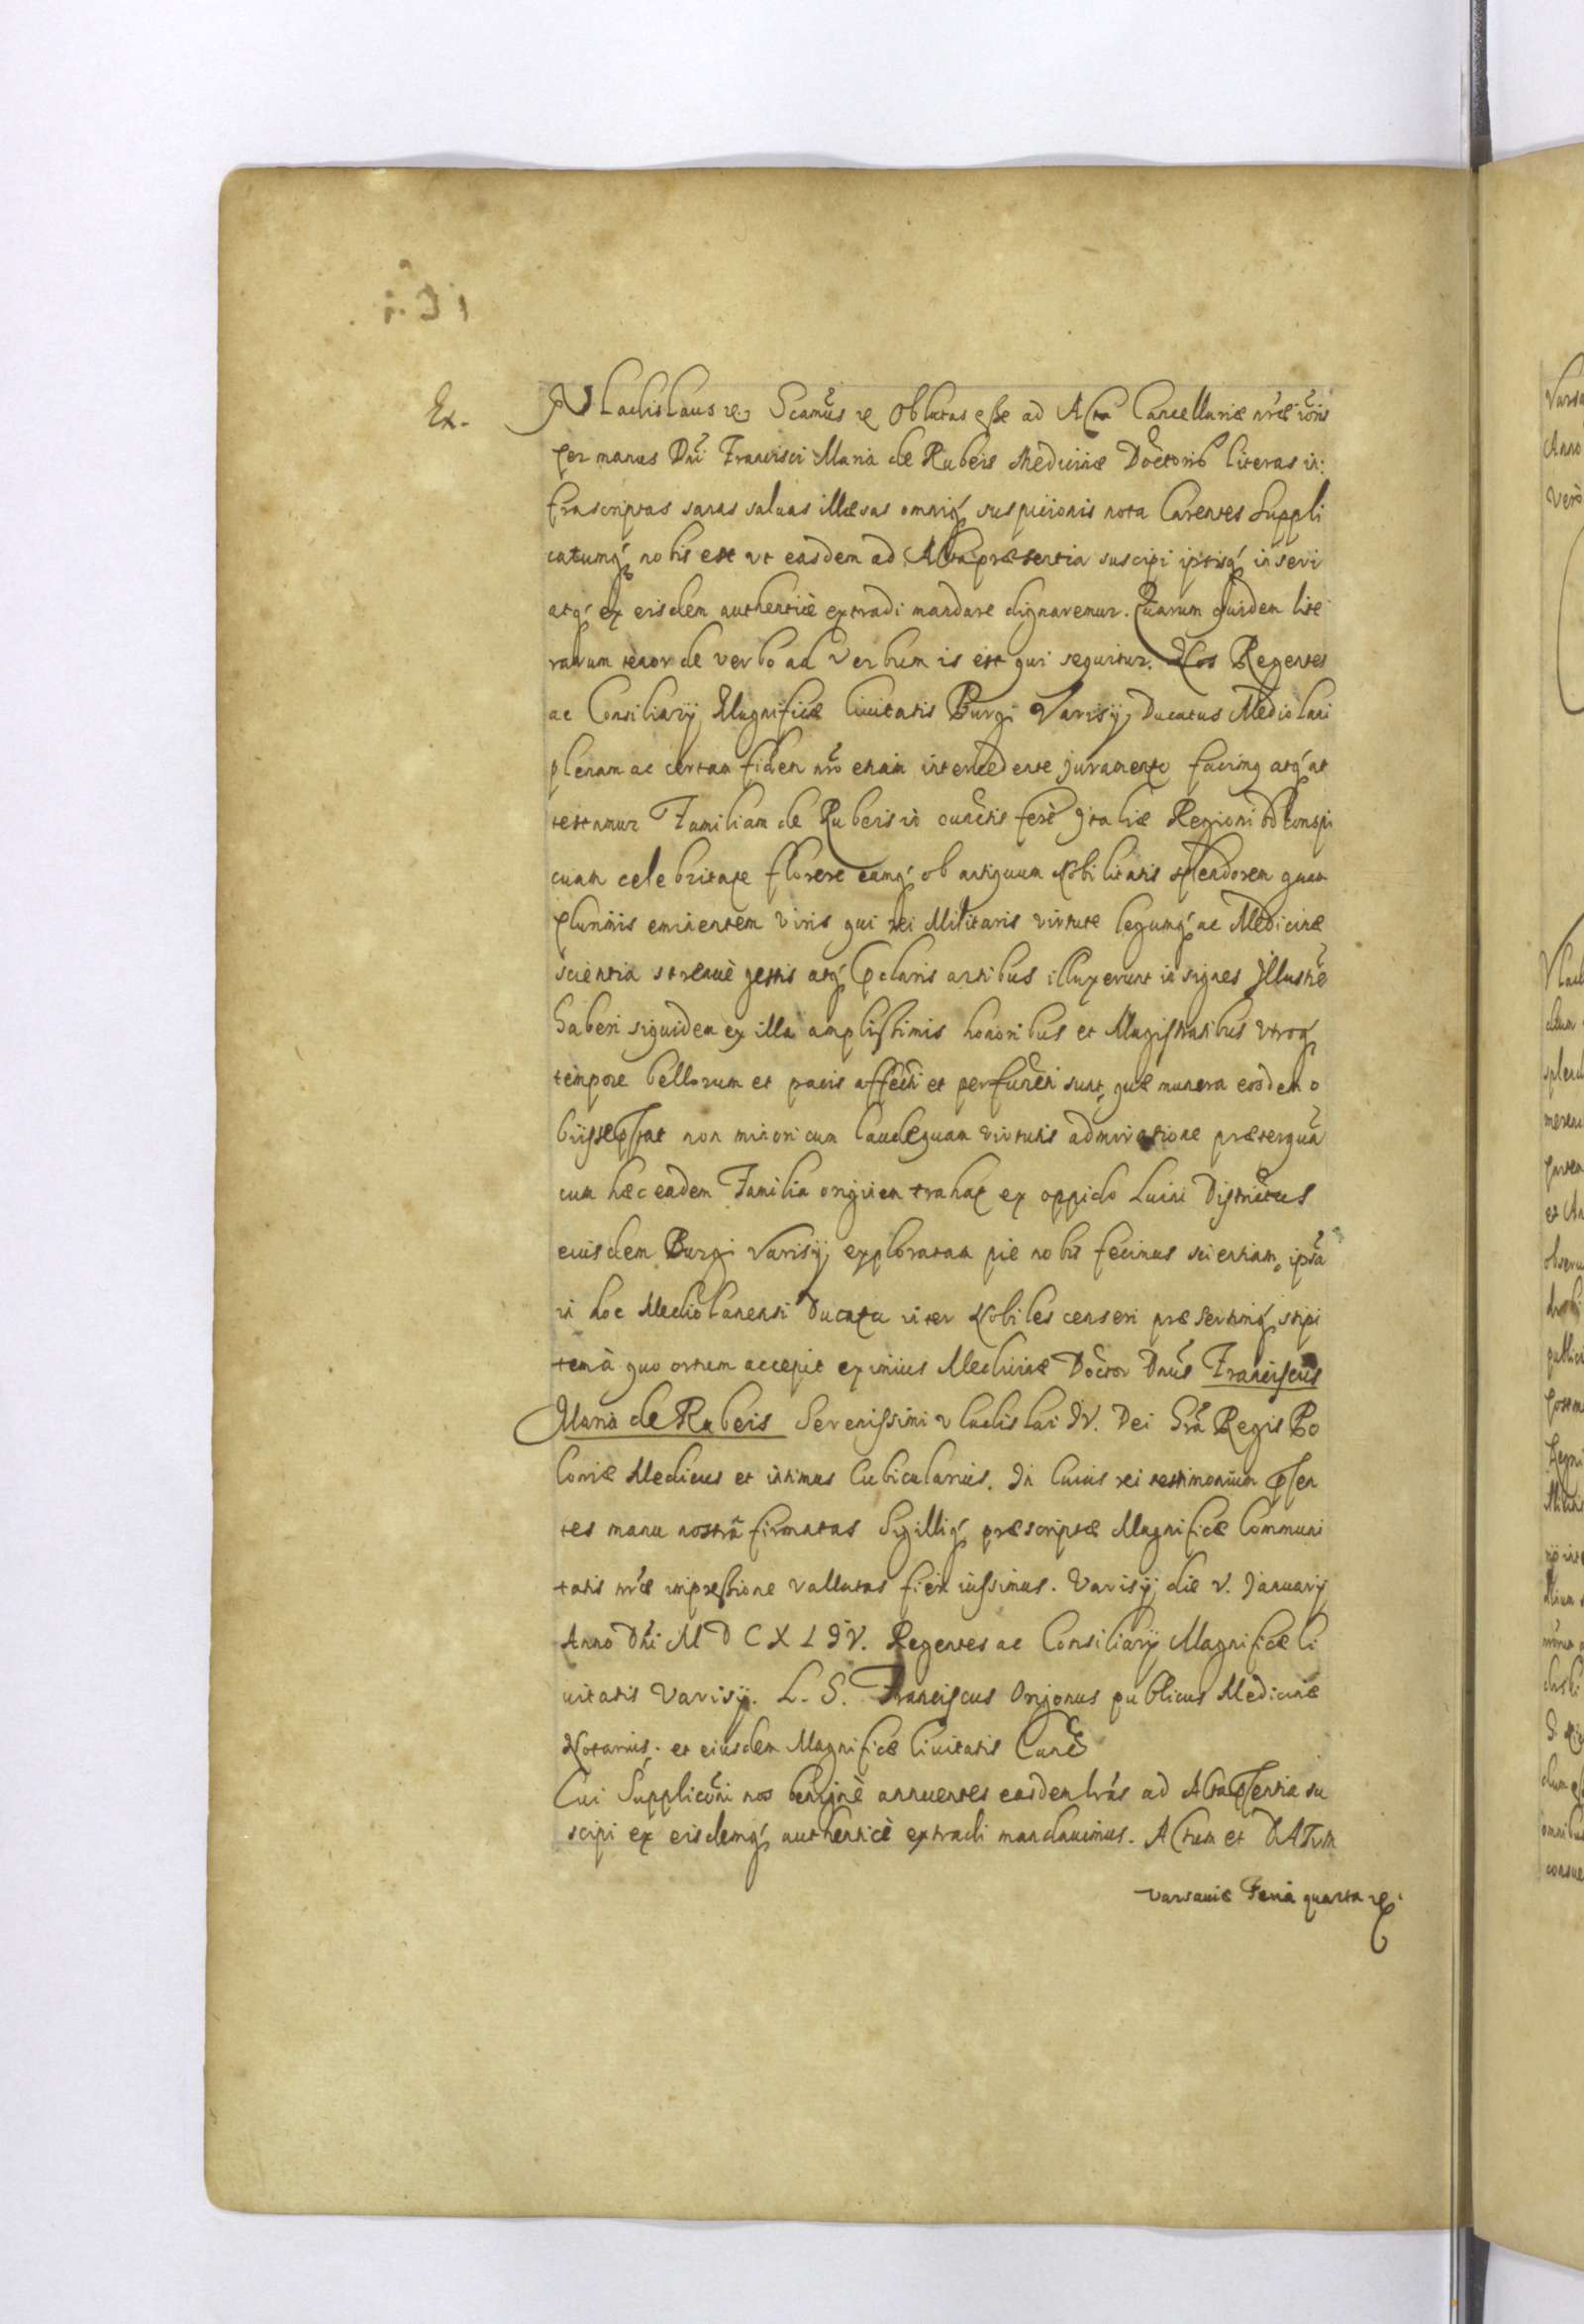 Ex.
Vladislaus etc. Scam9 etc Oblatas esse ad Acta Cancellariæ nr̃æ
per manus Dni Francisci Maria de Rubeis Medicinæ Doctoris literas in:
frascriptas sanas saluas illæsas omniq́ suspicionis nota Carentes Suppli
catumq́ nobis est vt easdem ad Acta præsentia suscipi ipsisq́ inseri
atq́ ex eisdem authenticè extradi mandare dignaremur. Quarum quidem lite
rarum tenor de verbo ad Verbum is est qui sequitur. Nos Regentes
ac Consiliarij Magnificæ Ciuitatis Burgi Varisij Ducatus Mediolani
plenam ac certam fidem nr̃o etiam intercedente juramento facimq atq́ at
testamur Familiam de Rubeis in cunctis ferè Italiæ Regionibq conspi
cuam celebritate florere eamq́ ob antiquum Nobilitatis splendorem quam
plurimis eminentem viris qui rei Militaris virtute legumq́ ac Medicinæ
scientia strenuè gestis atq́ pclaris artibus illuxerunt insignes Illustrẽ
haberi siquidem ex illa amplissimis honoribus et Magistratibus vtroq́
tempore bellorum et pacis affecti et perfuncti sunt, quæ munera eosdem o
biisse pstat non minori cum laude quam virtutis admiratione præterquã
cum hæc eadem Familia originem trahat ex oppido Luini Districtus
eiusdem Burgi Varisij exploratam pie nobis fecimus scientiam, ipsã
in hoc Mediolanensi Ducatu inter Nobiles censeri præsertimq́ stipi
tem à quo ortum accepit eximius Medicinæ Doctor Dnũs Franciscus
Maria de Rubeis Serenissimi Vladislai IV. Dei Grã Regis Po
loniæ Medicus et intimus Cubicularius. In Cuius rei testimonium psen
tes manu nostrã firmatas Sigilliq́ præscriptæ Magnificæ Communi
tatis nr̃æ impressione vallatas fieri iussimus. Varisij die V. Januarij
Anno Dni M D C X L IV. Regentes ac Consiliarij Magnificæ Ci
uitatis Varisij. L. S. Franciscus Orijonus publicus Medicinæ
Notarius. et eiusdem Magnificæ Ciuitatis Canc̃
Cui Supplicõni nos benignè annuentes easdem lrãs ad Acta psentia su
scipi ex eisdemq́ authenticè extradi mandauimus. Actum et DATum
Varsauiæ Feria quarta etc.